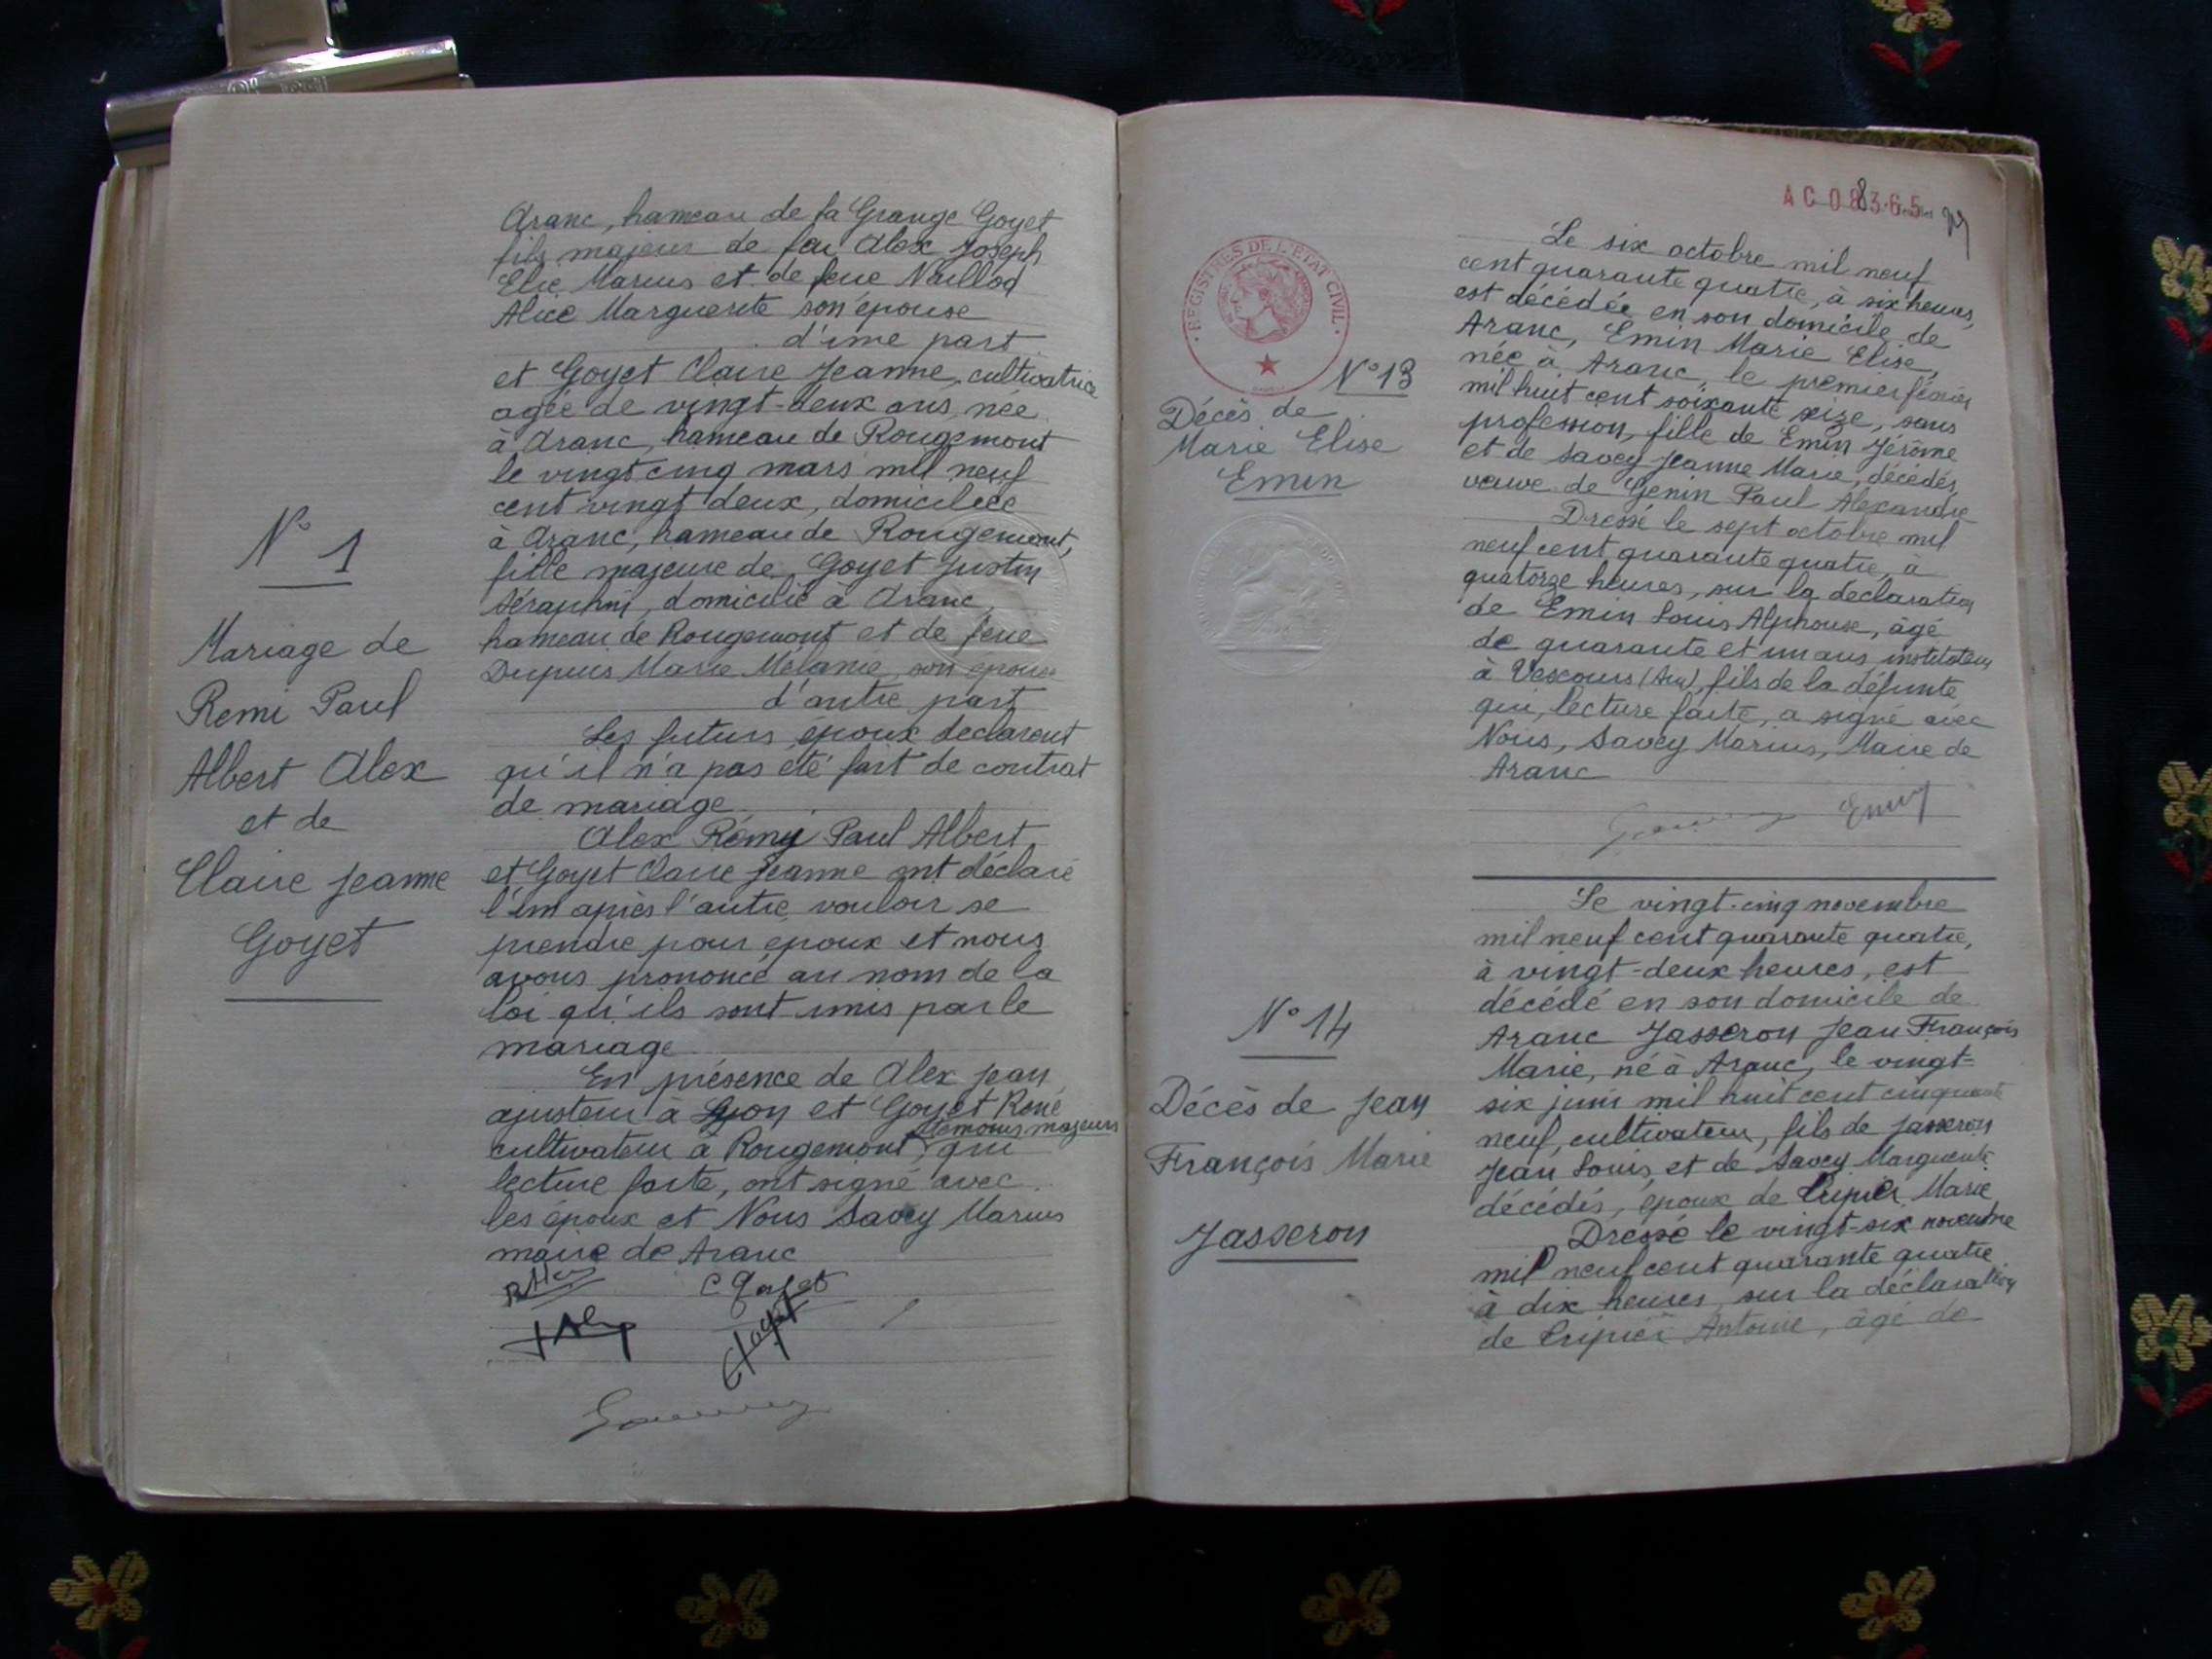 N° 1
Mariage de
Remi Paul
Albert Alex
et de
Claire Jeanne
Goyet
Aranc, hameau de la Grange Goyet
fils majeur de feu Alex Joseph
Elie Marius et de feue Naillod
Alice Marguerite son épouse
d'une part
et Goyet Claire Jeanne, cultivatrice
agée de vingt-deux ans, née
à Aranc, hameau de Rougemont
le vingt cinq mars mil neuf
cent vingt deux, domiciliée
à Aranc, hameau de Rougemont,
fille majeure de Goyet Justin
Séraphin, domicilié à Aranc,
hameau de Rougemont et de feue
Dupuis Marie Mélanie, son épouse
d'autre part
Les futurs époux déclarent
qu'il n'a pas été fait de contrat
de mariage
Alex Rémy Paul Albert
et Goyet Claire Jeanne ont déclaré
l'un après l'autre vouloir se
prendre pour époux et nous
avons prononcé au nom de la
loi qu'ils sont unis par le
mariage
En présence de Alex Jean
ajusteur à Lyon et Goyet René
témoins majeurs
cultivateur à Rougemont, qui
lecture faite, ont signé avec
les époux et Nous Savey Marius
maire de Aranc
C Goyet
REGISTRES DE L'ETAT CIVIL
AC 08365
N° 13
Décès de
Marie Elise
Emin
Le six octobre mil neuf
cent quarante quatre, à six heures,
est décédée en son domicile de
Aranc, Emin Marie Elise,
née à Aranc, le premier février
mil huit cent soixante seize, sans
profession, fille de Emin Jérôme
et de Savey Jeanne Marie, décédés,
veuve de Genin Paul Alexandre
Dressé le sept octobre mil
neuf cent quarante quatre, à
quatorze heures, sur la déclaration
de Emin Louis Alphonse, âgé
de quarante et un ans, instituteur
à Vescours (Ain), fils de la défunte
qui, lecture faite, a signé avec
Nous, Savey Marius, Maire de
Aranc
Emin
N° 14
Décès de Jean
François Marie
Jasseron
Le vingt-cinq novembre
mil neuf cent quarante quatre,
à vingt-deux heures, est
décédé en son domicile de
Aranc Jasseron Jean François
Marie, né à Aranc, le vingt-
six juin mil huit cent cinquante
neuf, cultivateur, fils de Jasseron
Jean Louis, et de Savey Marguerite
décédés, époux de Cripier Marie
Dressé le vingt-six novembre
mil neuf cent quarante quatre
à dix heures, sur la déclaration
de Cripier Antoine, âgé de